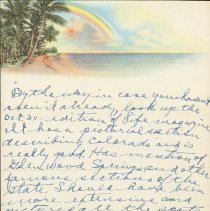 By the way in case you haven't
seen it already, look up the
Oct 25 - edition of Life magazine
It has a pictorial section
describing Colorado and is
really good. Has mention of
Glenwood Springs and other
famous sections of the
State. Should have been
more extensive and